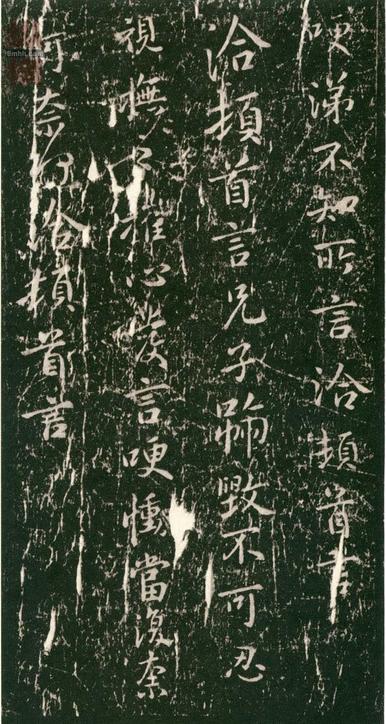 哽涕不知所言洽頓首言
洽頓首言兄子號毀不可忍
視撫之摧心發言哽慟當復奈
何奈何洽頓首言